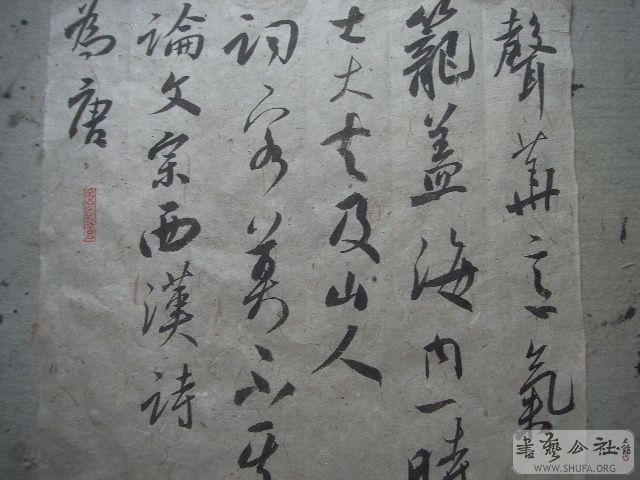 聲華意氣
籠蓋海内一時
士大夫及山人
詞客莫不
論文宗西漢詩
為唐
書藝公社
WWW.SHUFA.ORG